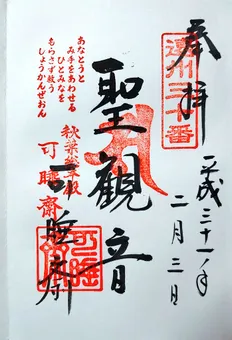 奉拝
遠州三十番
平成三十一年
二月三日
聖観音
あなとうと
み手をあわせる
ひとみなを
もらさず救う
しょうかんぜおん
秋葉総本殿
可睡斎
可睡斎